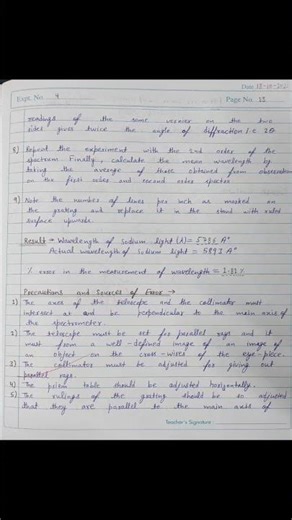 Date
Expt. No. 4
Page No. 12
readings of the same vernier on the two
sides gives twice the angle of diffraction i.e 2θ
8) Repeat the experiment with the 2nd order of the
spectrum. Finally, calculate the mean wavelength by
taking the average of those obtained from observation
on the first order and second order spectra.
9) Note the number of lines per inch as marked on
the grating and replace it in the stand with ruled
surface upwards.
Result → Wavelength of Sodium light (λ) = A°
Actual wavelength of Sodium light = 5893 A°
% error in the measurement of wavelength =
Precautions and Sources of Error →
1) The axes of the telescope and the collimator must
intersect at and be perpendicular to the main axis of
the spectrometer.
2) The telescope must be set for parallel rays and it
must form a well-defined image of an image of
an object on the cross-wires of the eye-piece.
3) The collimator must be adjusted for giving out
parallel rays.
4) The prism table should be adjusted horizontally.
5) The rulings of the grating should be so adjusted
that they are parallel to the main axis of
Teacher's Signature